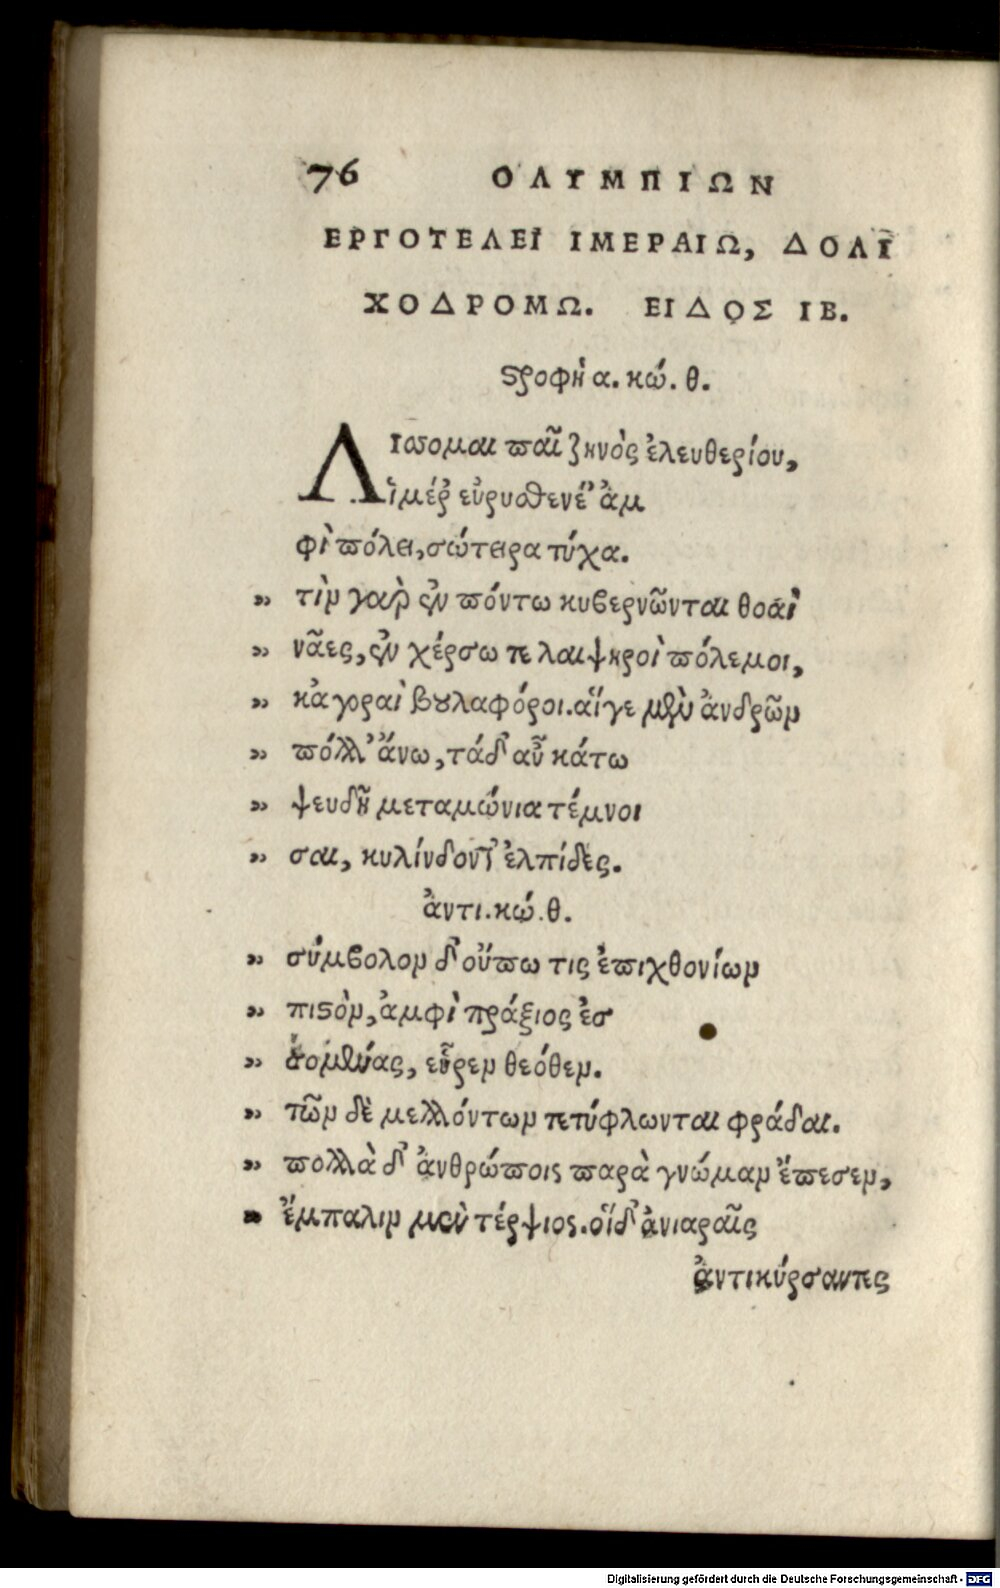 76 ΟΛΥΜΠΙΩΝ
ΕΡΓΟΤΕΛΕΙ ΙΜΕΡΑΙΩ, ΔΟΛΙ
ΧΟΔΡΟΜΩ. ΕΙΔΟΣ ΙΒ.
ϛροφὴ α. κώ. θ.
Λίσσομαι παῖ ζηνὸς ἐλευθερίου,
ἱμέρ εὐρυσθενέ' ἀμ
φὶ πόλει, σώτειρα τύχα.
„ τὶν γὰρ ἐν πόντω κυβερνῶνται θοαὶ
„ νᾶες, ἐν χέρσω τε λαιψηροὶ πόλεμοι,
„ κἀγοραὶ βουλαφόροι. αἵγε μὲν ἀνδρῶν
„ πόλλ' ἄνω, τάδ' αὖ κάτω
„ ψευδῆ μεταμώνια τέμνοι
„ σαι, κυλίνδοντ' ἐλπίδες.
ἀντι. κώ. θ.
„ σύμβολον δ' οὔπω τις ἐπιχθονίων
„ πιϛὸν, ἀμφὶ πράξιος ἐσ
„ σομένας, εὗρεν θεόθεν.
„ τῶν δὲ μελλόντων τετύφλωνται φράδαι.
„ πολλὰ δ' ἀνθρώποις παρὰ γνώμαν ἔπεσεν,
„ ἔμπαλιν μὲν τέρψιος. οἵδ' ἀνιαραῖς
ἀντικύρσαντες
Digitalisierung gefördert durch die Deutsche Forschungsgemeinschaft - DFG